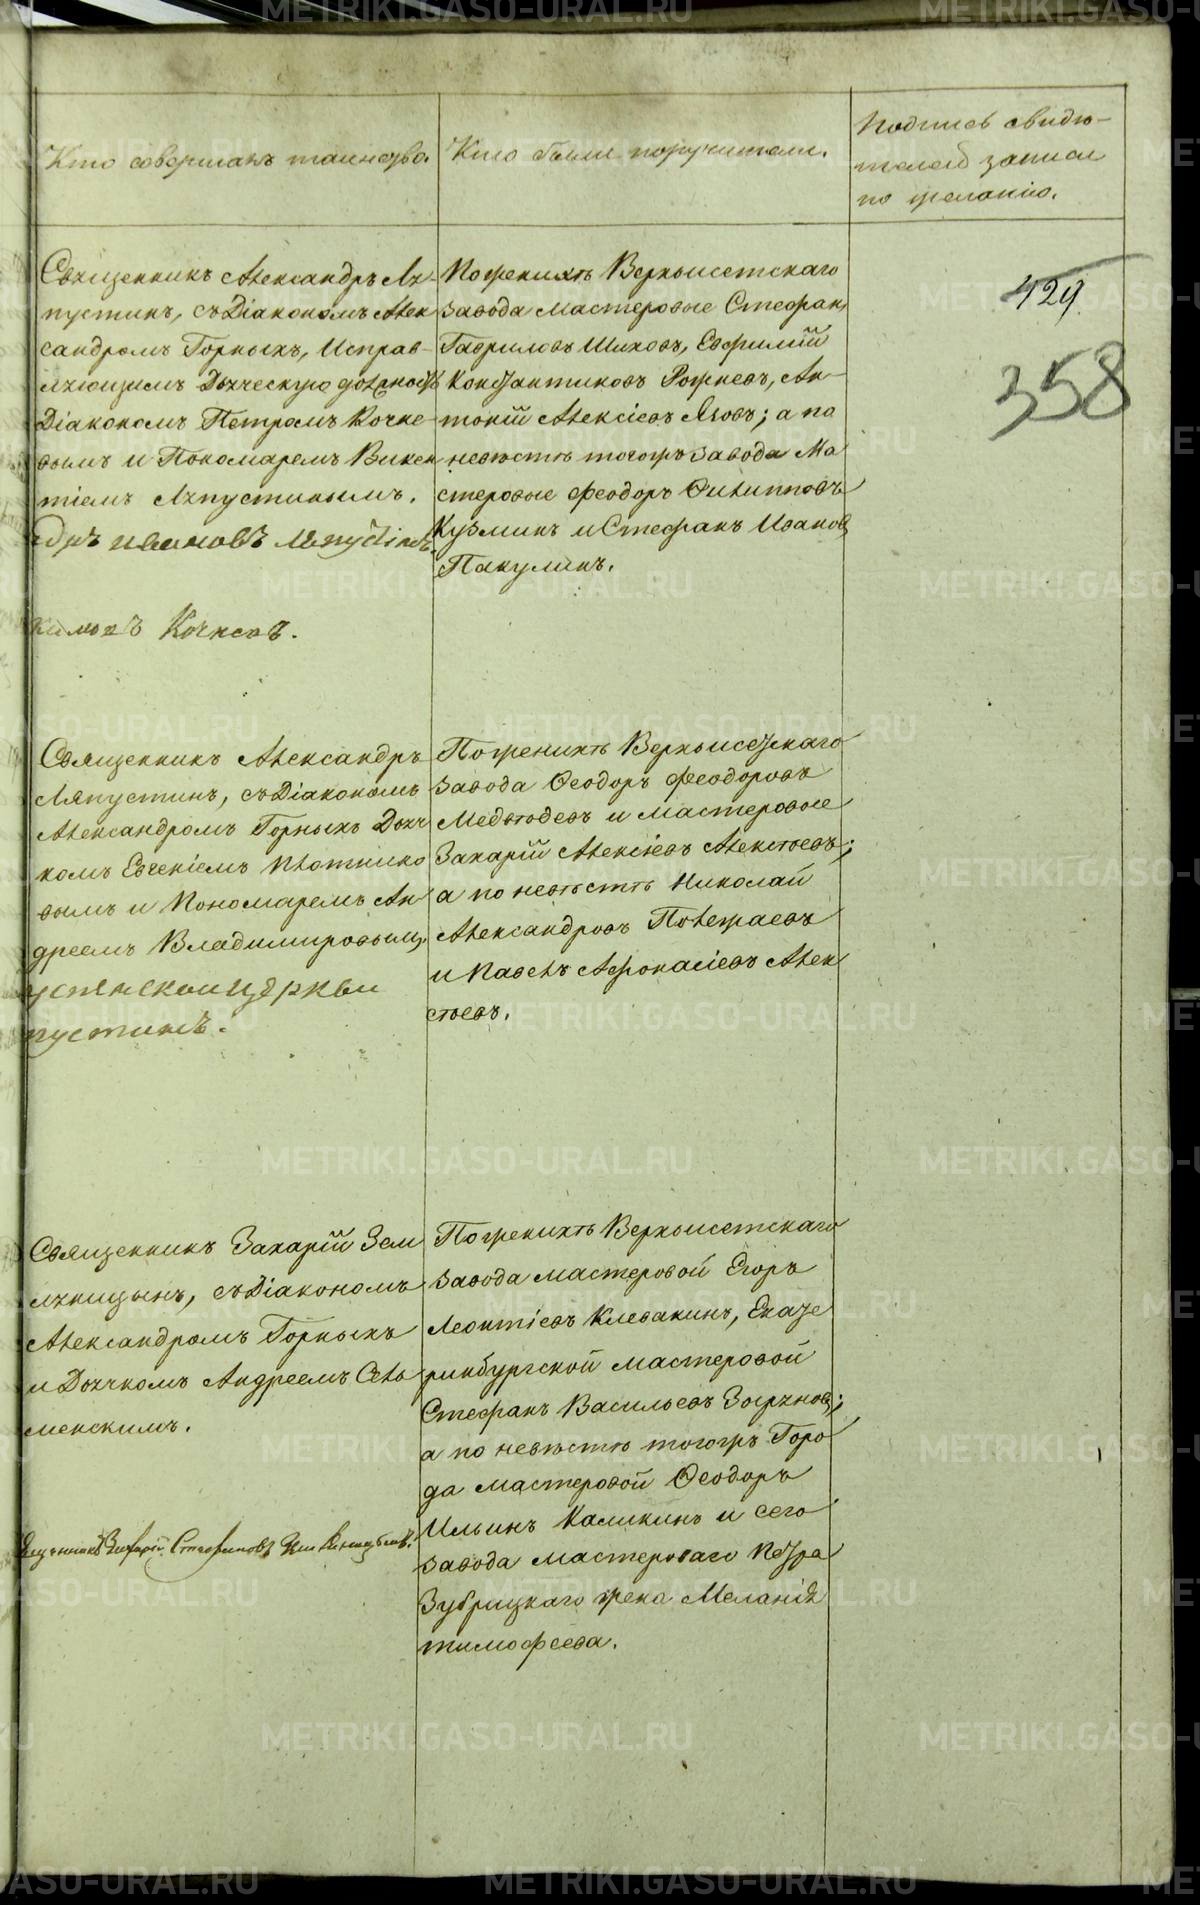 Кто совершалъ таинство.
Кто были поручители.
Подпись свидѣ-
телей записи
по желанію.
429
358
Священникъ Александръ Ля-
пустинъ, съ Діакономъ Алек
сандромъ Горныхъ, Исправ-
ляющимъ Дьяческую должность
Діакономъ Петромъ Кочне-
вымъ и Пономаремъ Викен
тіемъ Ляпустинымъ.
ндръ ивановъ ляпустинъ.
Кочневъ.
По женихѣ Верхъисетскаго
завода мастеровые Стефанъ
Гавриловъ Шиховъ, Евфимій
Константиновъ Рожневъ, Ан-
тоній Алексіевъ Язовъ; а по
невѣстѣ тогожъ завода Ма
стеровые Феодоръ Филипповъ
Кузминъ и Стефанъ Иванов
Пакулинъ.
Священникъ Александръ
Ляпустинъ, съ Діакономъ
Александромъ Горныхъ Дьяч
комъ Евгеніемъ Плотнико
вымъ и Пономаремъ Ан
дреемъ Владимировымъ,
церкви
пустинъ.
По женихѣ Верхъисетскаго
завода Ѳеодоръ Феодоровъ
Медвѣдевъ и мастеровые
Захарій Алексіевъ Алексѣевъ;
а по невѣстѣ Николай
Александровъ Полежаевъ
и Павелъ Афонасіевъ Алек
сѣевъ.
Священникъ Захарій Зем
ляницынъ, съ Діакономъ
Александромъ Горныхъ
и Дьячкомъ Андреемъ Сель
менскимъ.
Захарій Стефановъ
По женихѣ Верхъисетскаго
завода мастеровой Егоръ
Леонтіевъ Клевакинъ, Екате
ринбургской мастеровой
Стефанъ Васильевъ
а по невѣстѣ тогожъ Горо
да мастеровой Ѳеодоръ
Ильинъ Каликинъ и сего
завода мастероваго Петра
Зубрицкаго жена Меланія
тимофеева.
METRIKI.GASO-URAL.RU